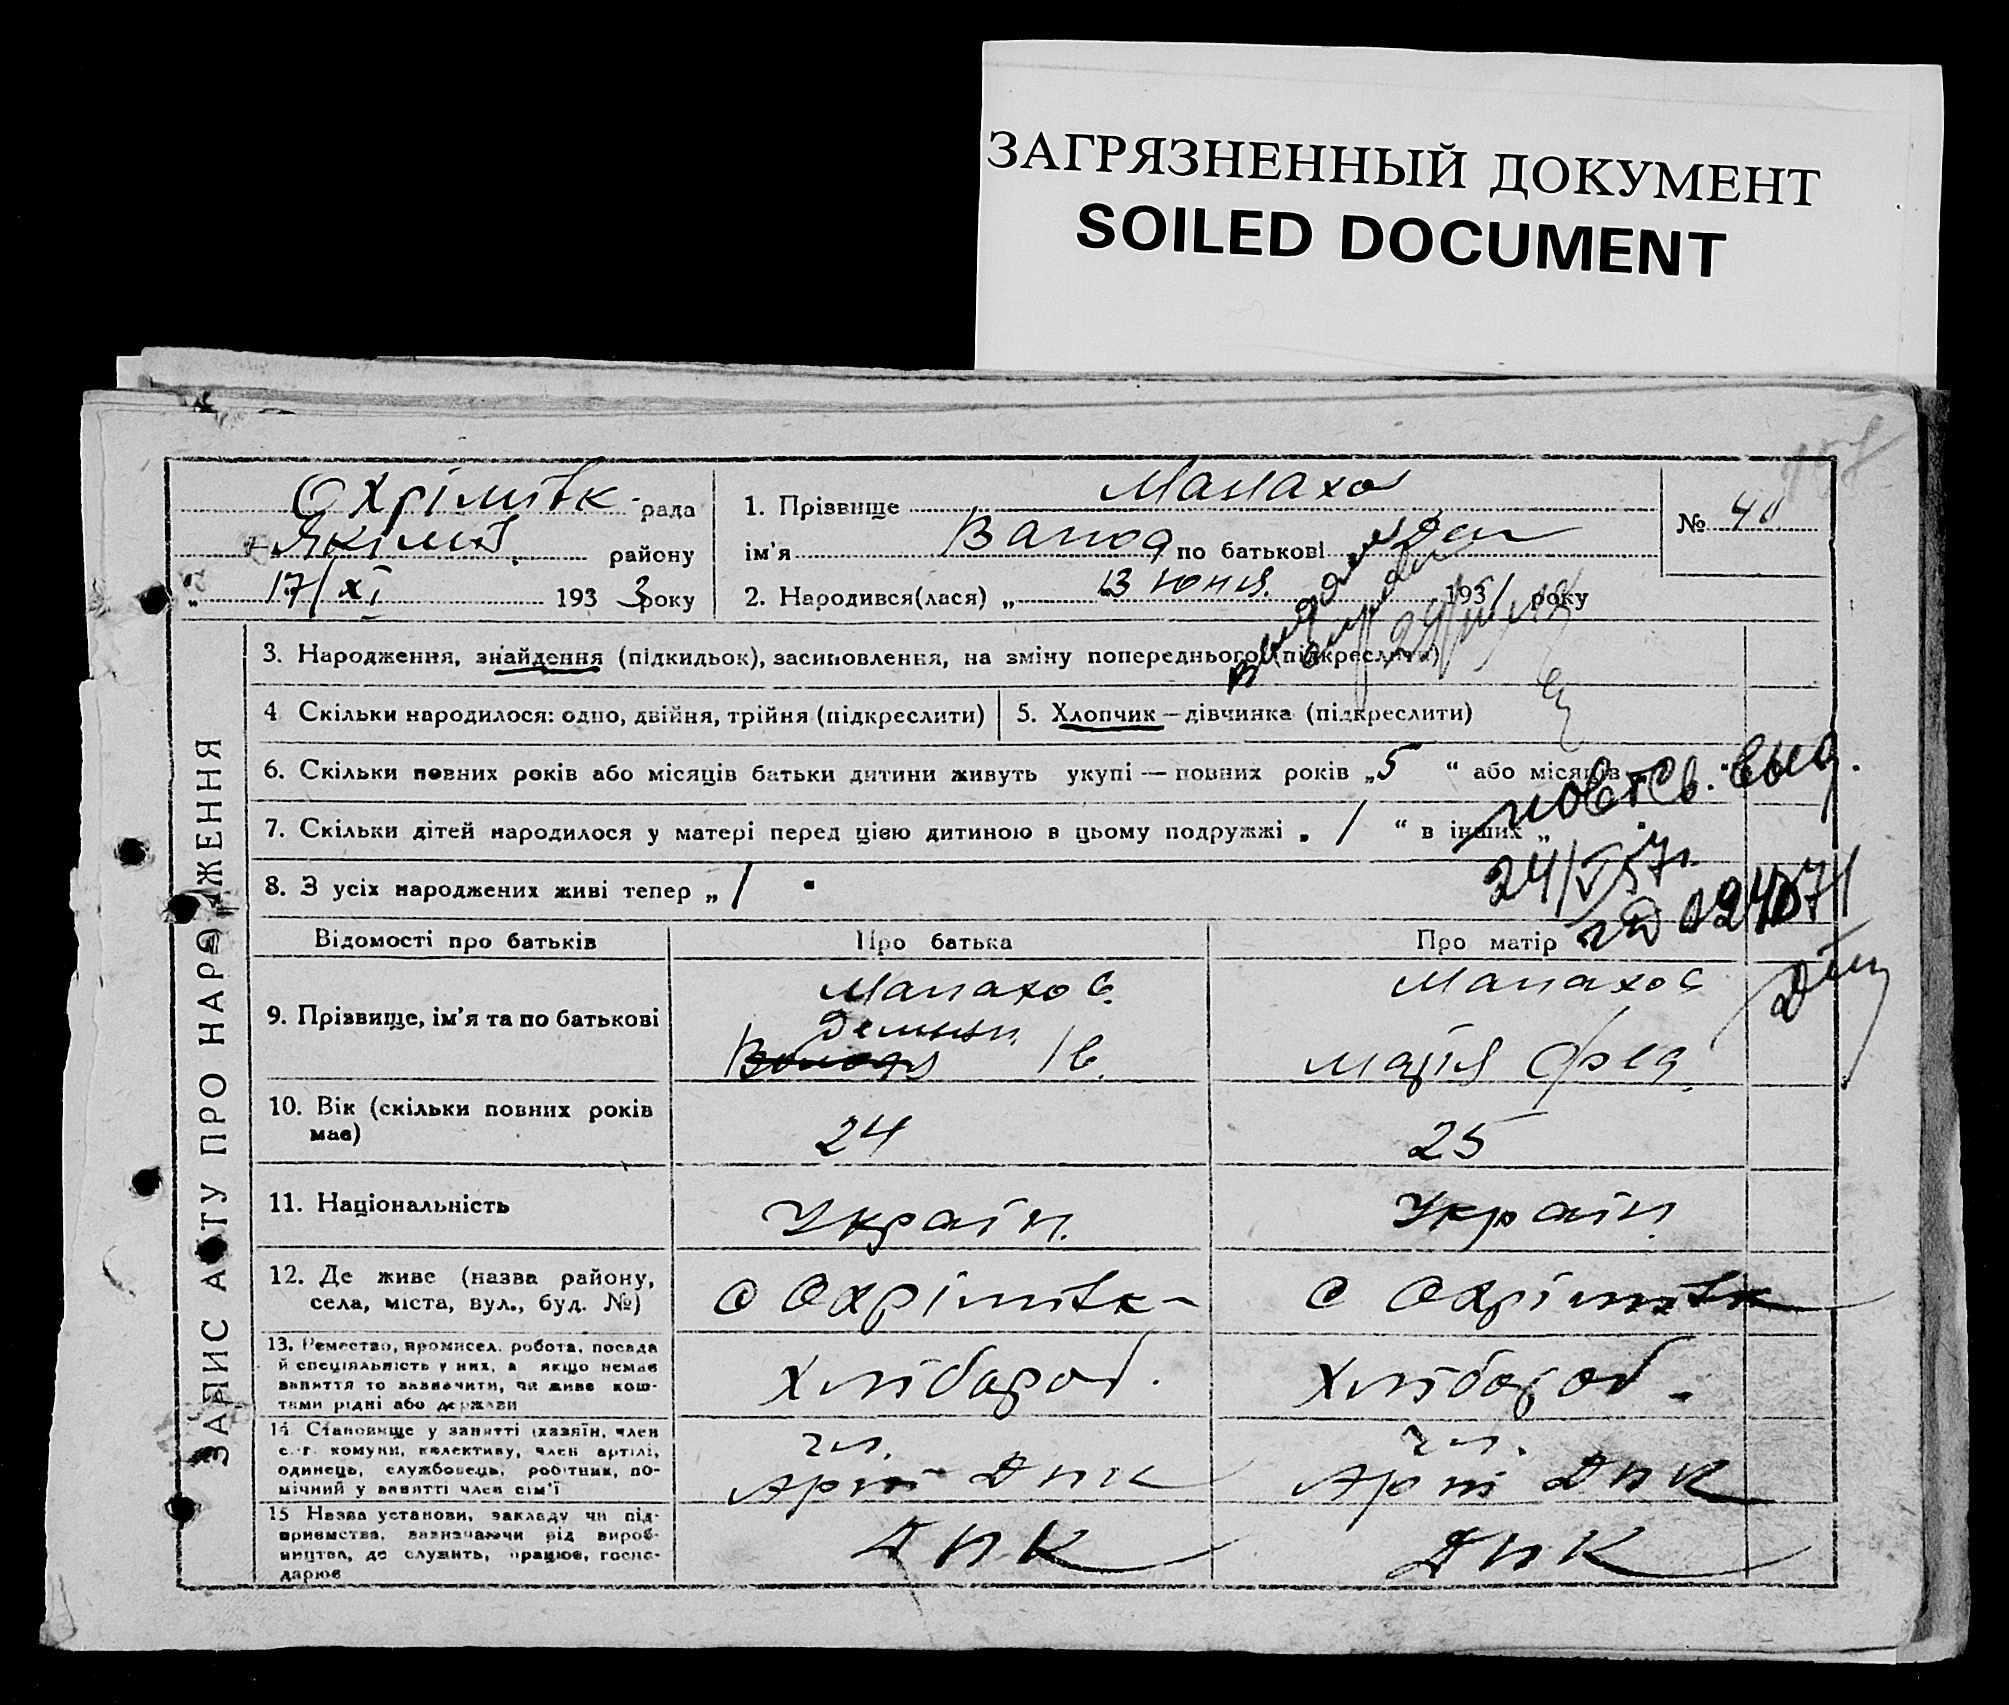 ЗАГРЯЗНЕННЫЙ ДОКУМЕНТ
SOILED DOCUMENT
ЗАПИС АКТУ ПРО НАРОДЖЕННЯ
Охрімівк- рада
Якімів. району
17/XI 1933 року
1. Прізвище Малахов
ім'я Волод по батькові Дем
2. Народився(лася) „ 13 юня. 1931 року
№ 40
3. Народження, знайдення (підкидьок), засиновлення, на зміну попереднього (підкреслити)
4 Скільки народилося: одно, двійня, трійня (підкреслити)
5. Хлопчик — дівчинка (підкреслити)
6. Скільки повних років або місяців батьки дитини живуть укупі — повних років „5 “ або місяців
7. Скільки дітей народилося у матері перед цією дитиною в цьому подружжі „ 1 “ в інших „
8. З усіх народжених живі тепер „ 1
повт св. выд.
24/V 57г.
Відомості про батьків
Про батька
Про матір
9. Прізвище, ім'я та по батькові
Малахов
Демьян
Ів.
Малахов
Марія Фед.
10. Вік (скільки повних років має)
24
25
11. Національність
Україн.
Україн.
12. Де живе (назва району, села, міста, вул., буд. №)
с Охрімівк-
с Охрімівк
13. Ремество, промисел. робота, посада
й спеціяльність у них, а якщо немає
заняття то зазначити, чи живе кош-
тами рідні або держави
Хлібороб.
Хлібороб.
14. Становище у занятті (хазяїн, член
с.-г. комуни, колективу, член артілі,
одинець, службовець, робітник, по-
мічний у занятті член сім'ї
чл.
Арт ДПК
чл.
Арт ДПК
15 Назва установи, закладу чи під-
приємства, зазначаючи рід вироб-
ництва, де служить, працює, госпо-
дарює
ДПК
ДПК